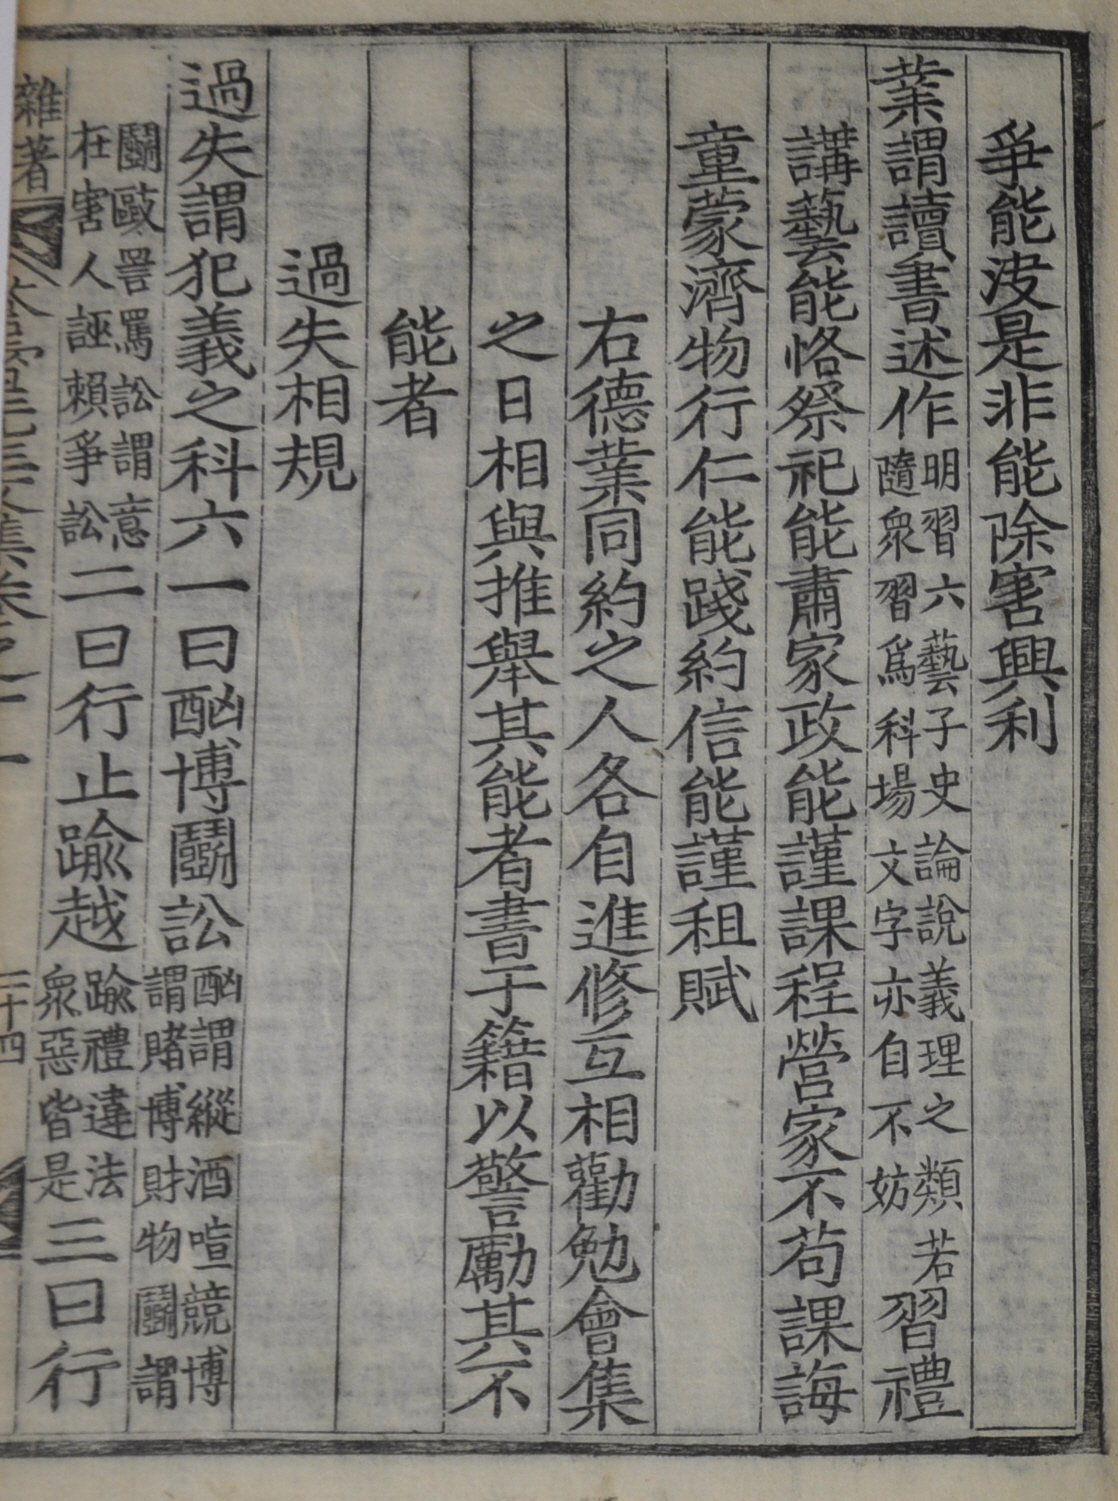 爭能决是非能除害興利
業謂讀書述作明習六藝子史論說義理之類若隨衆習爲科場文字亦自不妨習禮
講藝能恪祭祀能肅家政能謹課程營家不苟課誨
童蒙濟物行仁能踐約信能謹租賦
右德業同約之人各自進修互相勸勉會集
之日相與推舉其能者書于籍以警勵其不
能者
過失相規
過失謂犯義之科六一曰酗博鬭訟酗謂縱酒喧競博謂賭博財物鬭謂
鬭歐詈罵訟謂意在害人誣賴爭訟二曰行止踰越踰禮違法衆惡皆是三曰行
雜著
二十四